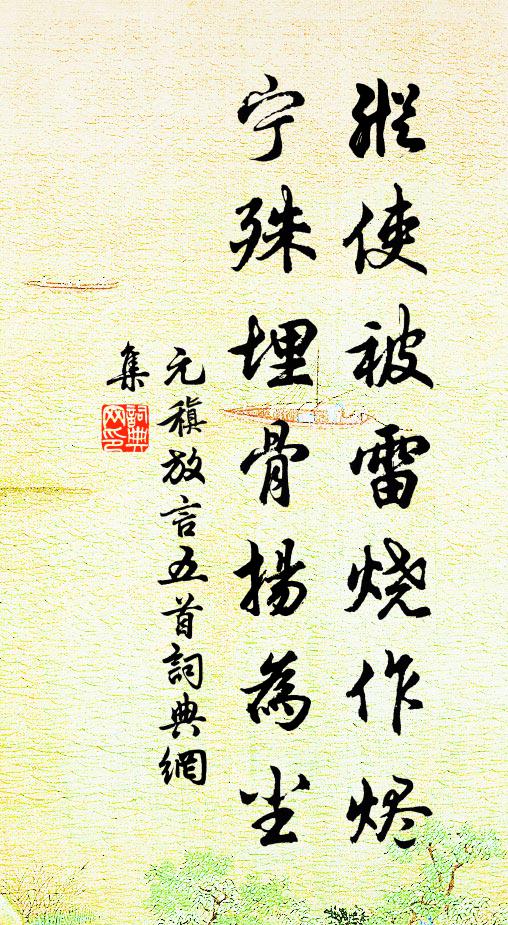 縱使被雷烧作烬
宁殊埋骨揚為尘
元稹放言五首詞典網
集
詞典网印